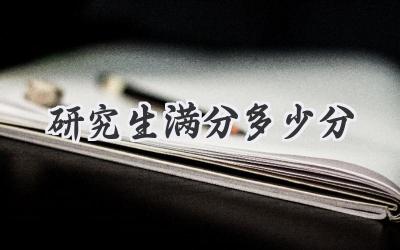 研究生满分多少分